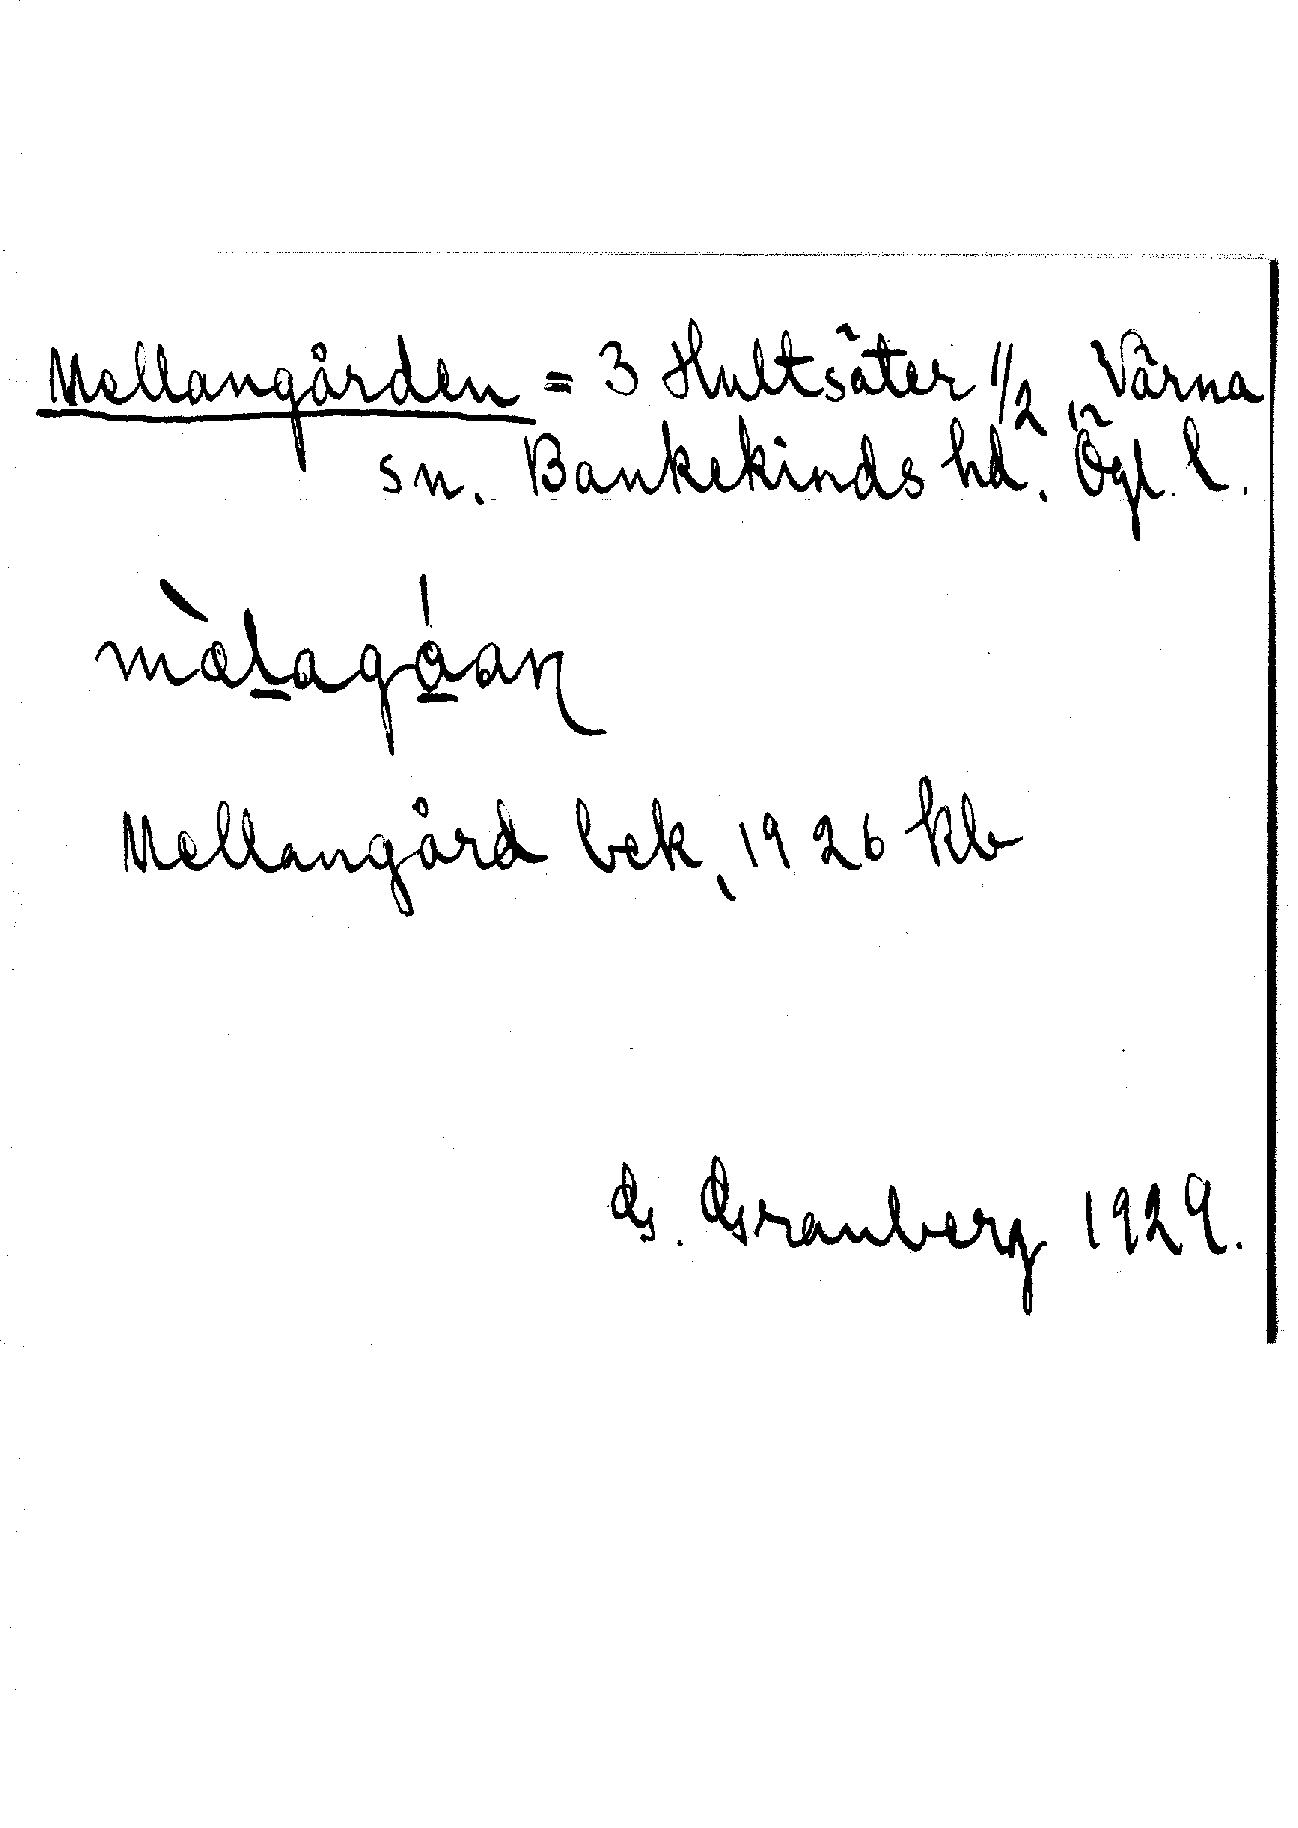 Mellangården = 3 Hultsäter 1/2, Värna
sn. Bankekinds hd. Ögl. l.
mὰlagåan
Mellangård bek, 1926 kb
G. Granberg 1929.